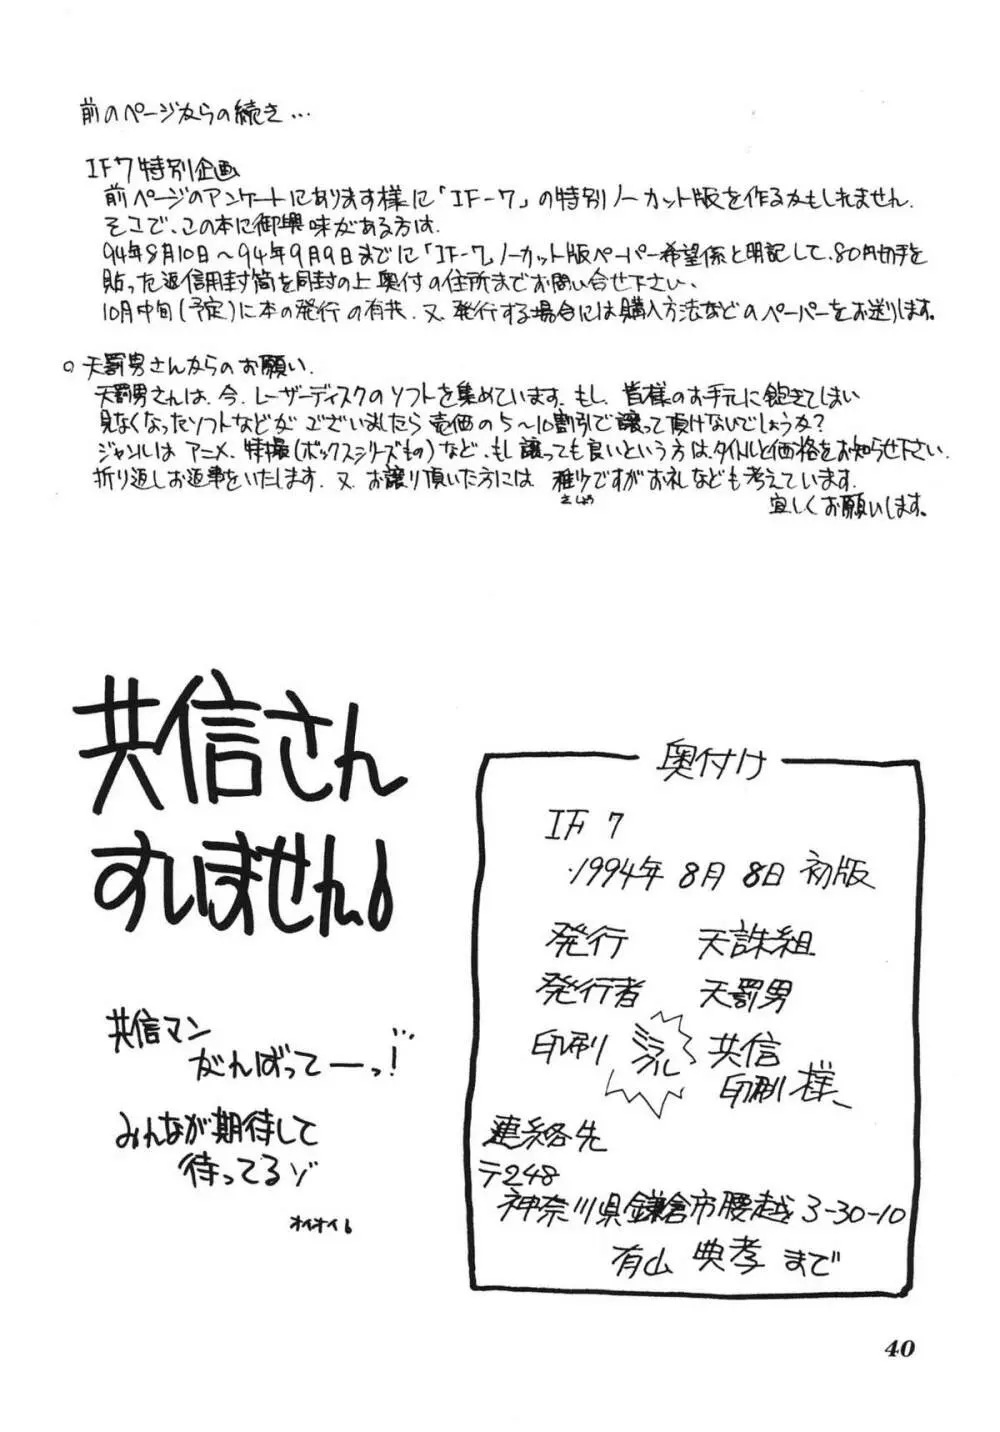 前のページからの続き…
IF7特別企画
前ページのアンケートにあります様に「IF-7」の特別ノーカット版を作るかもしれません.
そこで、この本に御興味がある方は.
94年8月10日〜94年9月9日までに「IF-7」ノーカット版ペーパー希望係と明記して、80円切手を
貼った返信用封筒を同封の上奥付の住所までお問い合せ下さい、
10月中旬(予定)に本の発行の有無.又、発行する場合には購入方法などのペーパーをお送りします。
○天罰男さんからのお願い.
天罰男さんは、今、レーザーディスクのソフトを集めています。もし、皆様のお手元に飽きてしまい
見なくなったソフトなどがございましたら売価の5〜10割引で譲って頂けないでしょうか?
ジャンルはアニメ、特撮(ボックスシリーズもの)など、もし譲っても良いという方はタイトルと価格をお知らせ下さい.
折り返しお返事をいたします.又、お譲り頂いた方には
ですがお礼なども考えています.
さしょう
宜しくお願いします。
共信さん
すいません。
共信マン
がんばってーっ!
みんなが期待して
待ってるゾ
オイオイ。
奥付け
IF 7
.1994年 8月 8日 初版
発行 天誅組
発行者 天罰男
印刷 ミラクル 共信
印刷 様、
連絡先
〒248
神奈川県鎌倉市腰越3-30-10
有山 典孝 まで
40